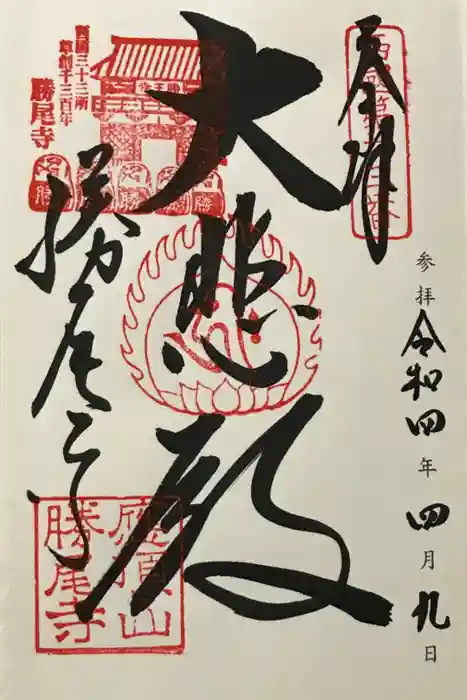 奉拝
西国第二十三番
参拝 令和四年四月九日
大悲殿
勝尾寺
西国三十三所
草創千三百年
勝尾寺
應頂山
勝尾寺